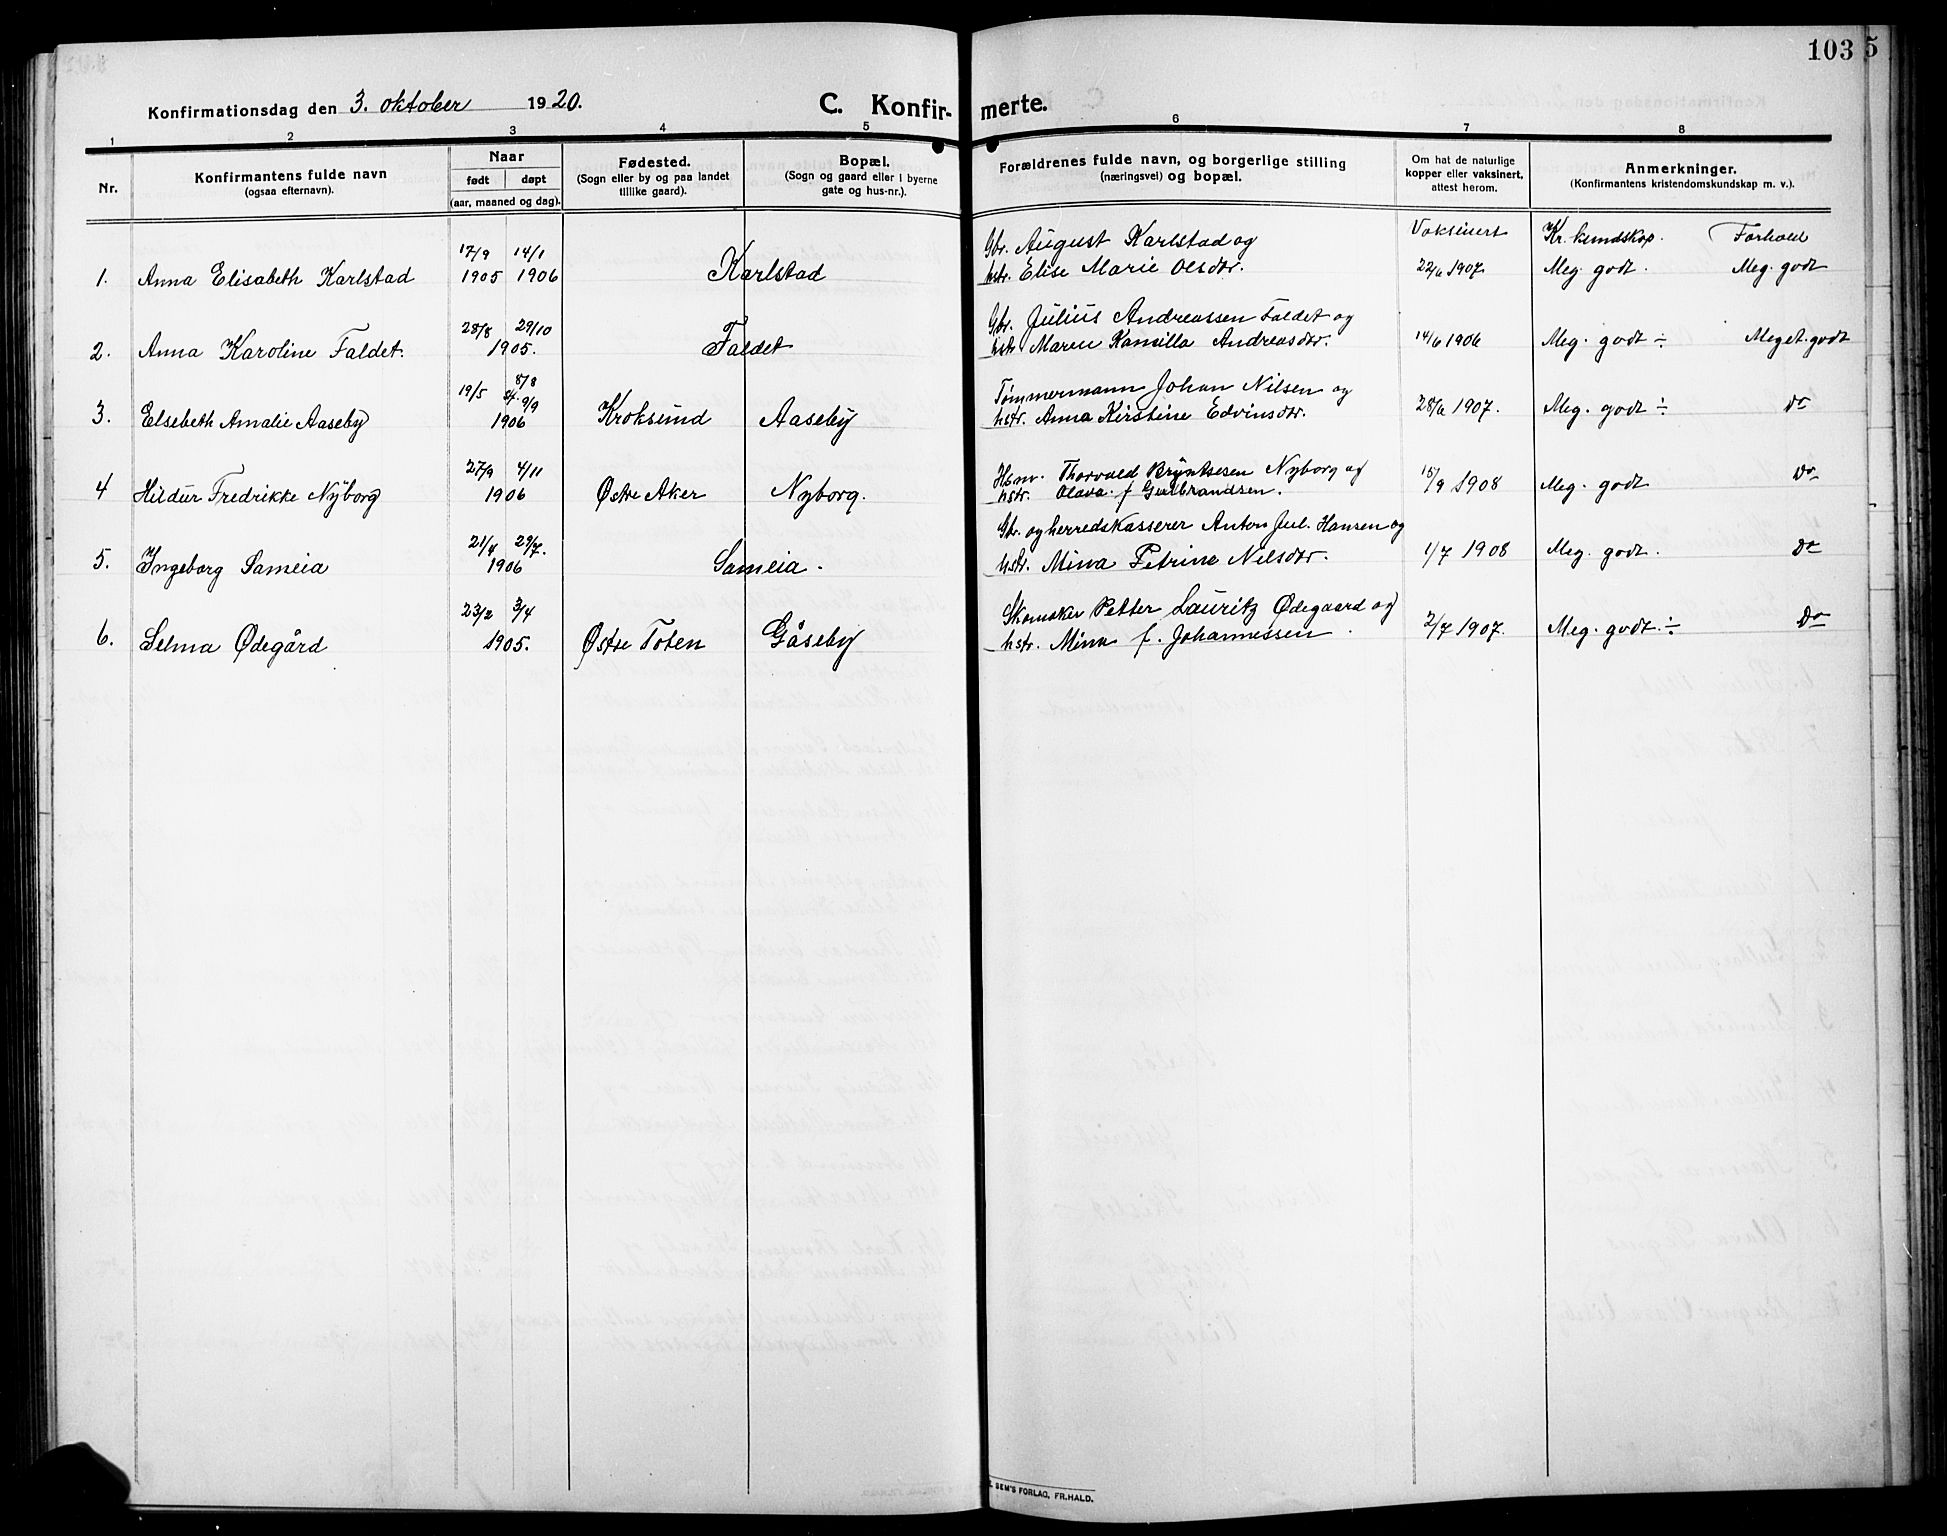 103 5
Konfirmationsdag den 3. oktober 1920.
C. Konfir- merte.
1 2 3 4 5 6 7 8
Nr.
Konfirmantens fulde navn
(ogsaa efternavn).
Naar
født døpt
(aar, maaned og dag).
Fødested.
(Sogn eller by og paa landet
tillike gaard).
Bopæl.
(Sogn og gaard eller i byerne
gate og hus-nr.).
Forældrenes fulde navn, og borgerlige stilling
(næringsvei) og bopæl.
Om hat de naturlige
kopper eller vaksinert,
attest herom.
Anmerkninger.
(Konfirmantens kristendomskundskap m. v.).
17/9 14/1 Gbr. August Karlstad og Vaksinert Kr. kundskap. Forhold
1. Anna Elisabeth Karlstad 1905 1906 Karlstad hstr. Elise Marie Olsdtr. 22/6 1907. Meg. godt. Meg. godt
28/8 29/10 Gbr. Julius Andreassen Faldet og
2. Anna Karoline Faldet. 1905. Faldet hstr Maren Kamilla Andreasdtr. 14/6 1906 Meg. godt ÷ Meget godt
19/5 8/8 9/9 Tømmermann Johan Nilsen og
3. Elsebeth Amalie Aaseby 1906 Kroksund Aaseby hstr. Anna Kirstine Edvinsdtr. 28/6 1907. Meg. godt ÷ Do
27/9 4/11 Hsm. Thorvald Bryntesen Nyborg og
4 Hildur Fredrikke Nyborg 1906 Østre Aker Nyborg. hstr. Olava f Gulbrandsen. 15/9 1908 Meg. godt Do
21/4 29/7. Gbr. og herredskasserer Anton Jul. Hansen og
5. Ingeborg Sameia 1906 Sameia. hstr. Mina Petrine Nilsdtr. 1/7 1908 Meg. godt. Do
23/2 3/4 Skomaker Petter Lauritz Ødegaard og
6. Selma Ødegård 1905. Østre Toten Gåseby hstr. Mina f. Johannessen. 2/7 1907. Meg. godt. ÷ Do
SEM'S FORLAG, FR.HALD.